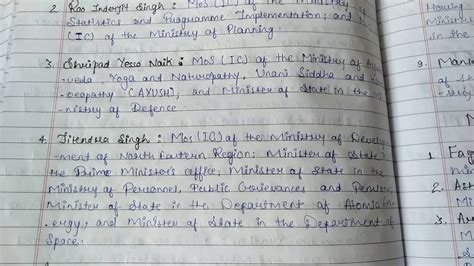 2. Rao Inderjit Singh : MoS (IC) of the Ministry of
Statistics and Programme Implementation; and
(IC) of the Ministry of Planning.
3. Shripad Yesso Naik : MoS (IC) of the Ministry of
veda, Yoga and Naturopathy, Unani Siddha and
oeopathy (AYUSH), and Minister of State in the
nistry of Defence.
4. Jitendra Singh : MoS (IC) of the Ministry of Develop
-ment of North Eastern Region; Minister of State
the Prime Minister's office, Minister of State in the
Ministry of Personnel, Public Grievances and Pension
Minister of State in the Department of Atomic
ergy; and Minister of State in the Department of
Space.
Ministry
9.
1.
2.
3.